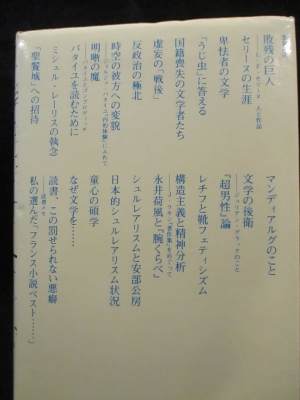 敗残の巨人
セリーヌの生涯
卑怯者の文学
「うじ虫」に答える
国籍喪失の文学者たち
虚妄の「戦後」
反政治の極北
時空の彼方への変貌
明晰の魔
バタイユを読むために
ミシェル・レーリスの執念
「聖賢城」への招待
マンディアルグのこと
文学の後衛
『超男性』論
レチフと靴フェティシズム
構造主義と精神分析
永井荷風と『腕くらべ』
シュルレアリスムと安部公房
日本的シュルレアリスム状況
童心の碩学
なぜ文学を……
読書、この罰せられない悪癖
私の選んだ「フランス小説ベスト……」